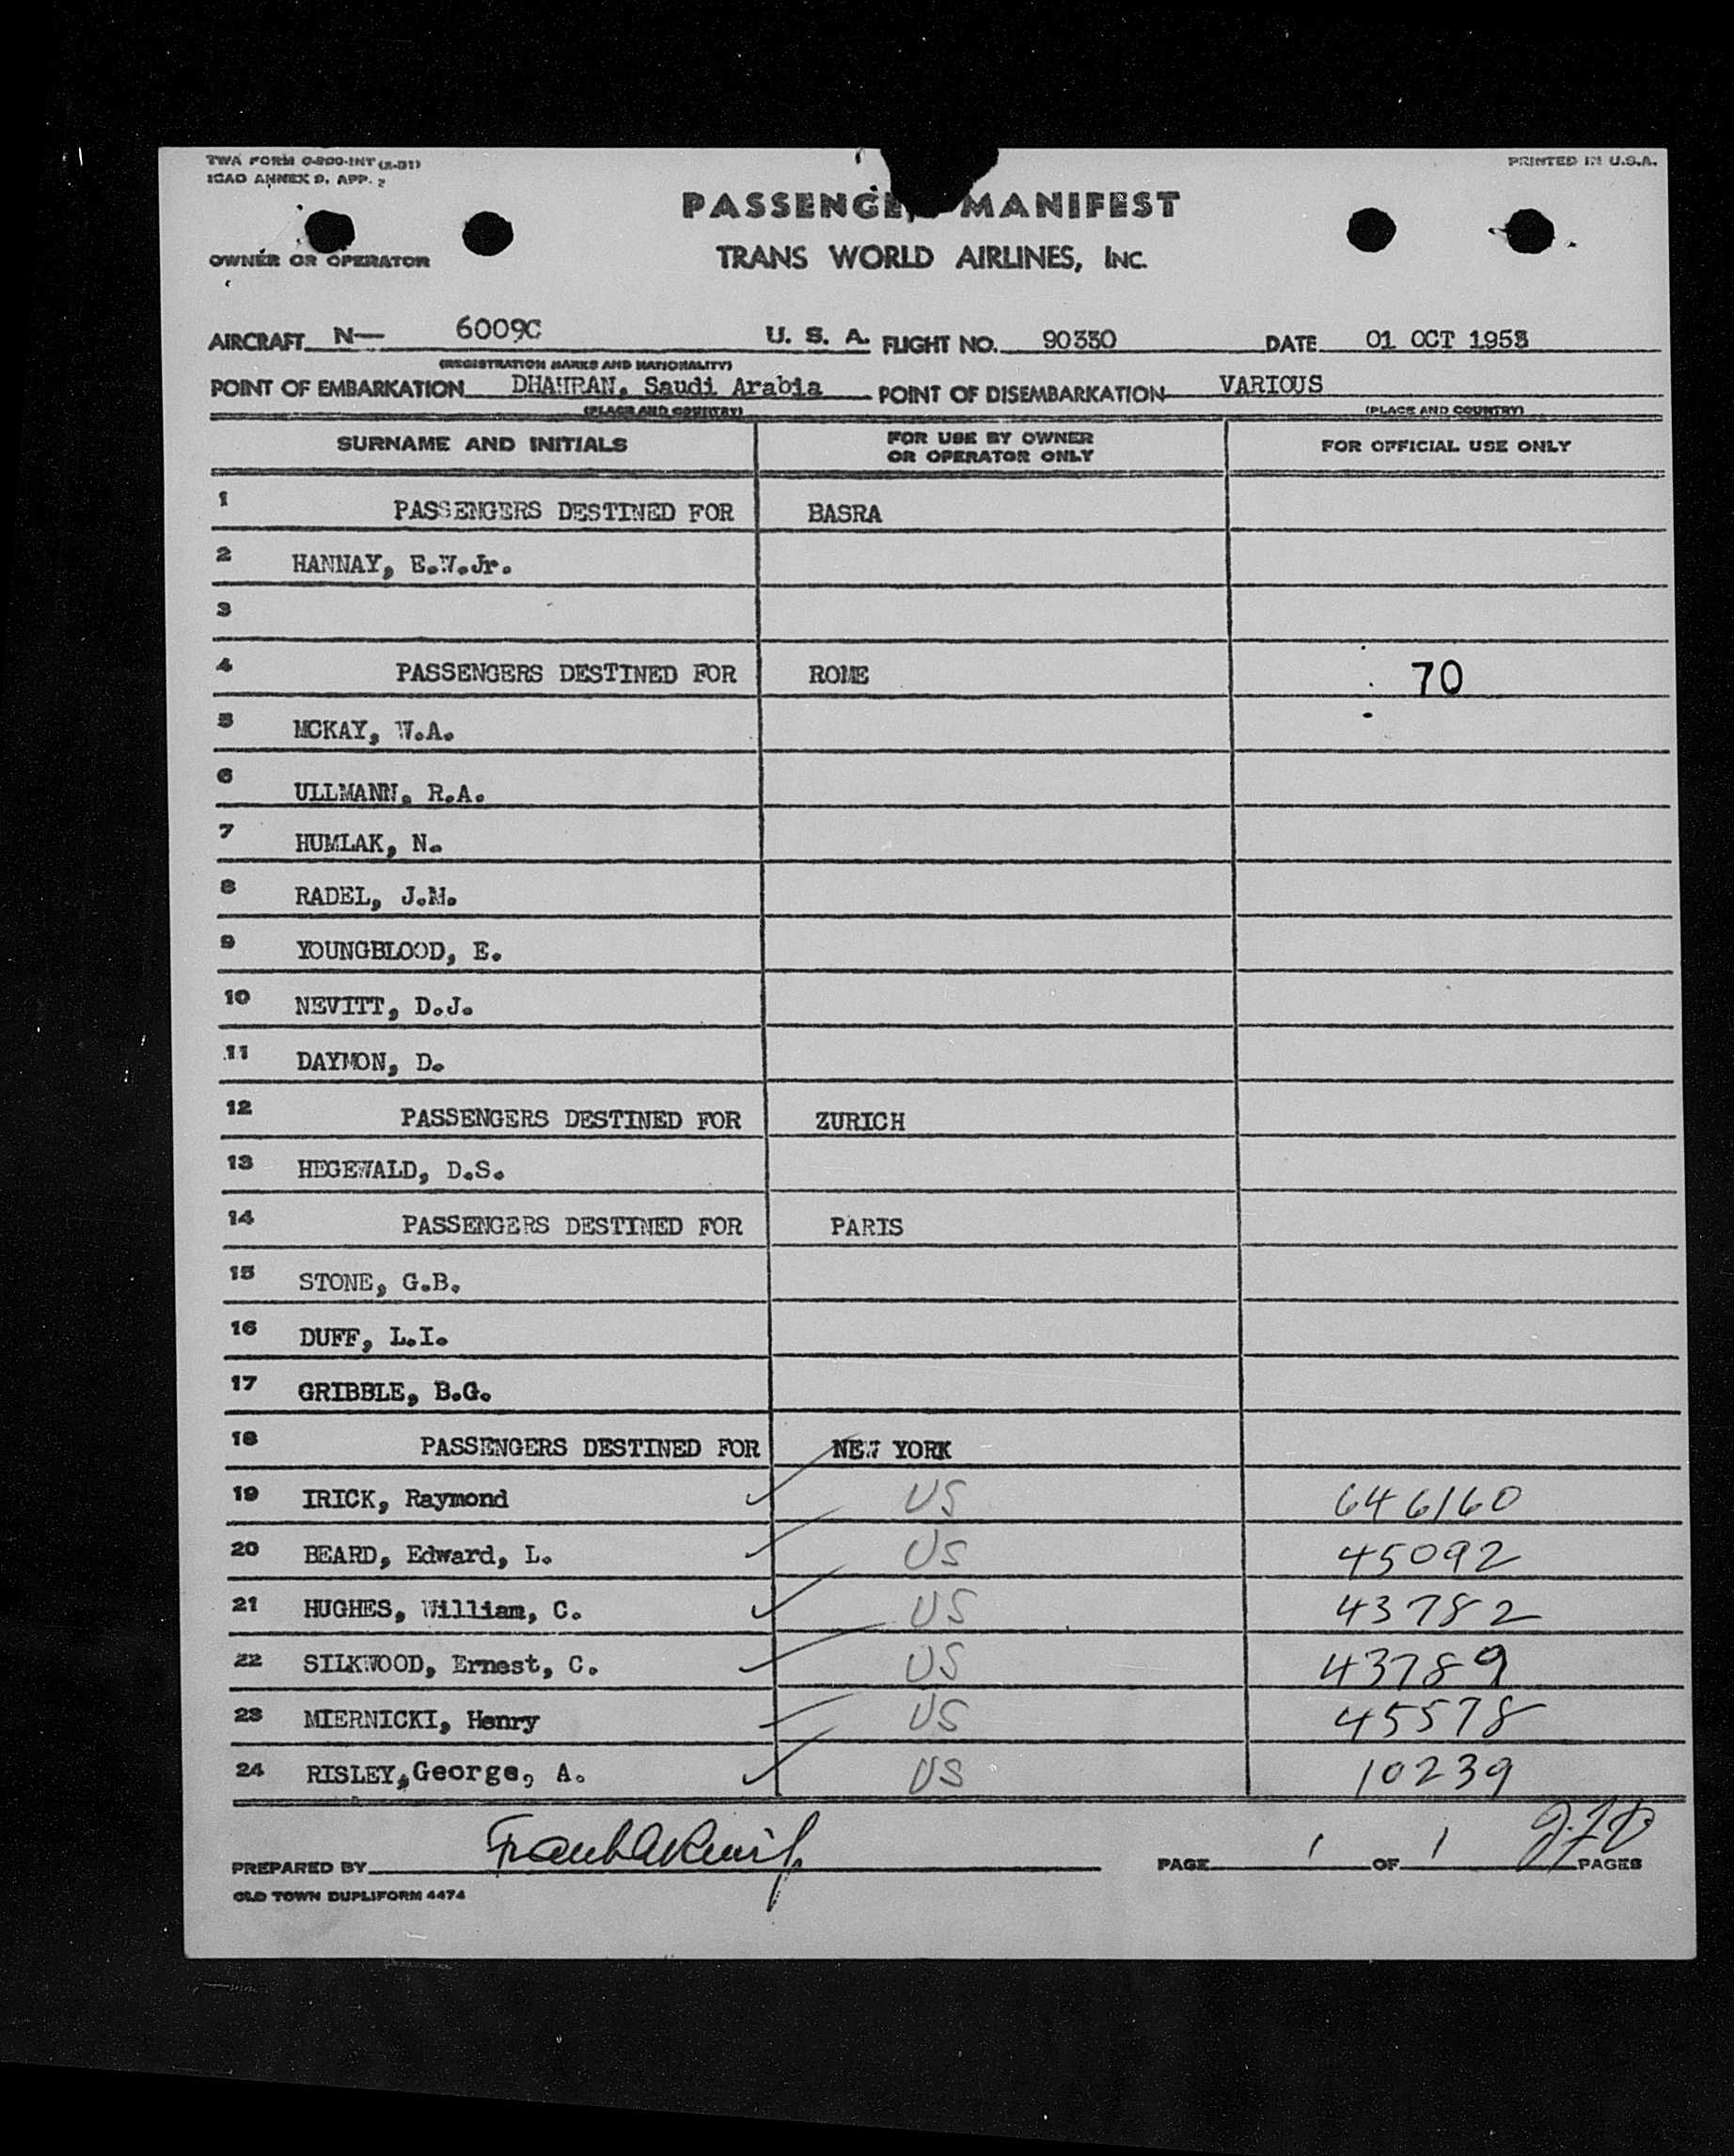 TWA FORM O-800-INT (2-51)
ICAO ANNEX 9, APP. 2
PRINTED IN U.S.A.
PASSENGE MANIFEST
OWNER OR OPERATOR
TRANS WORLD AIRLINES, INC.
AIRCRAFT N— 6009C U. S. A. FLIGHT NO. 90330 DATE 01 OCT 1953
(REGISTRATION MARKS AND NATIONALITY)
POINT OF EMBARKATION DHAHRAN, Saudi Arabia POINT OF DISEMBARKATION VARIOUS
(PLACE AND COUNTRY) (PLACE AND COUNTRY)
SURNAME AND INITIALS FOR USE BY OWNER OR OPERATOR ONLY FOR OFFICIAL USE ONLY
1 PASSENGERS DESTINED FOR BASRA
2 HANNAY, E.W.Jr.
3
4 PASSENGERS DESTINED FOR ROME 70
5 MCKAY, W.A.
6 ULLMANN, R.A.
7 HUMLAK, N.
8 RADEL, J.M.
9 YOUNGBLOOD, E.
10 NEVITT, D.J.
11 DAYMON, D.
12 PASSENGERS DESTINED FOR ZURICH
13 HEGEWALD, D.S.
14 PASSENGERS DESTINED FOR PARIS
15 STONE, G.B.
16 DUFF, L.I.
17 GRIBBLE, B.G.
18 PASSENGERS DESTINED FOR NEW YORK
19 IRICK, Raymond US 646160
20 BEARD, Edward, L. US 45092
21 HUGHES, William, C. US 43782
22 SILKWOOD, Ernest, C. US 43789
23 MIERNICKI, Henry US 45578
24 RISLEY, George, A. US 10239
PREPARED BY PAGE 1 OF 1 PAGES
OLD TOWN DUPLIFORM 4474